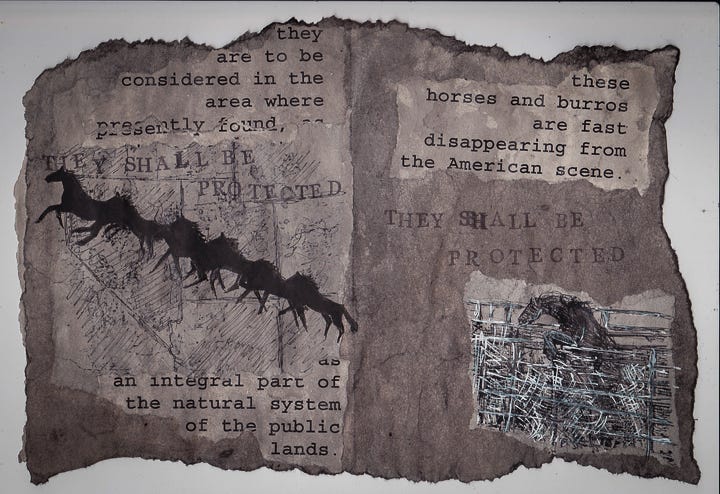 they
are to be
considered in the
area where
presently found, as
THEY SHALL BE
PROTECTED
as
an integral part of
the natural system
of the public
lands.
these
horses and burros
are fast
disappearing from
the American scene.
THEY SHALL BE
PROTECTED